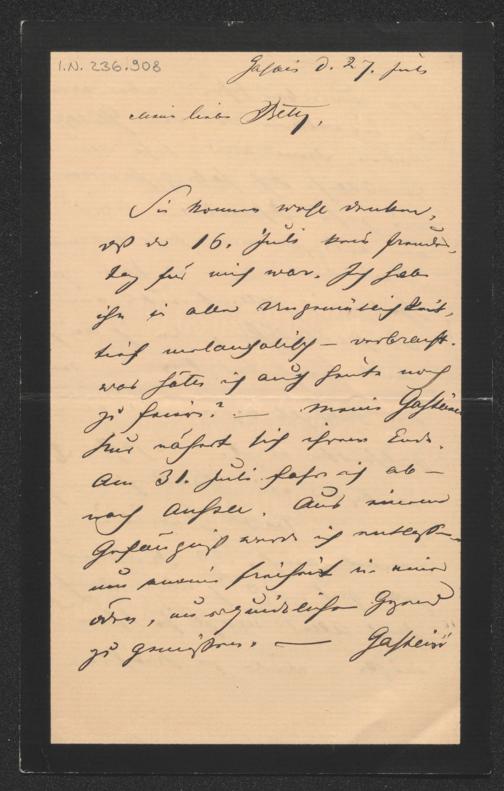 I.N. 236.908
Gastein d. 27. Juli
Meine liebe Betty,
Sie können wohl denken,
daß der 16. Juli kein Freuden-
tag für mich war. Ich habe
ihn in aller Ungemütlichkeit,
tief melancholisch – verbracht.
was hätte ich auch heute noch
zu feiern? — meine Gasteiner
Kur nähert sich ihrem Ende.
Am 31. Juli fahre ich ab –
nach Aussee. Aus einem
Gefängniß werde ich entlassen
um meine Freiheit in einer
öden, unerquicklichen Gegend
zu genießen. — Gastein